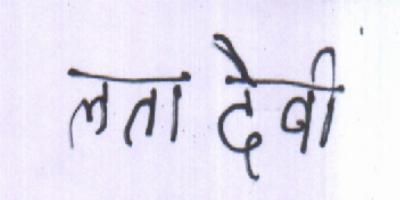 लता देवी